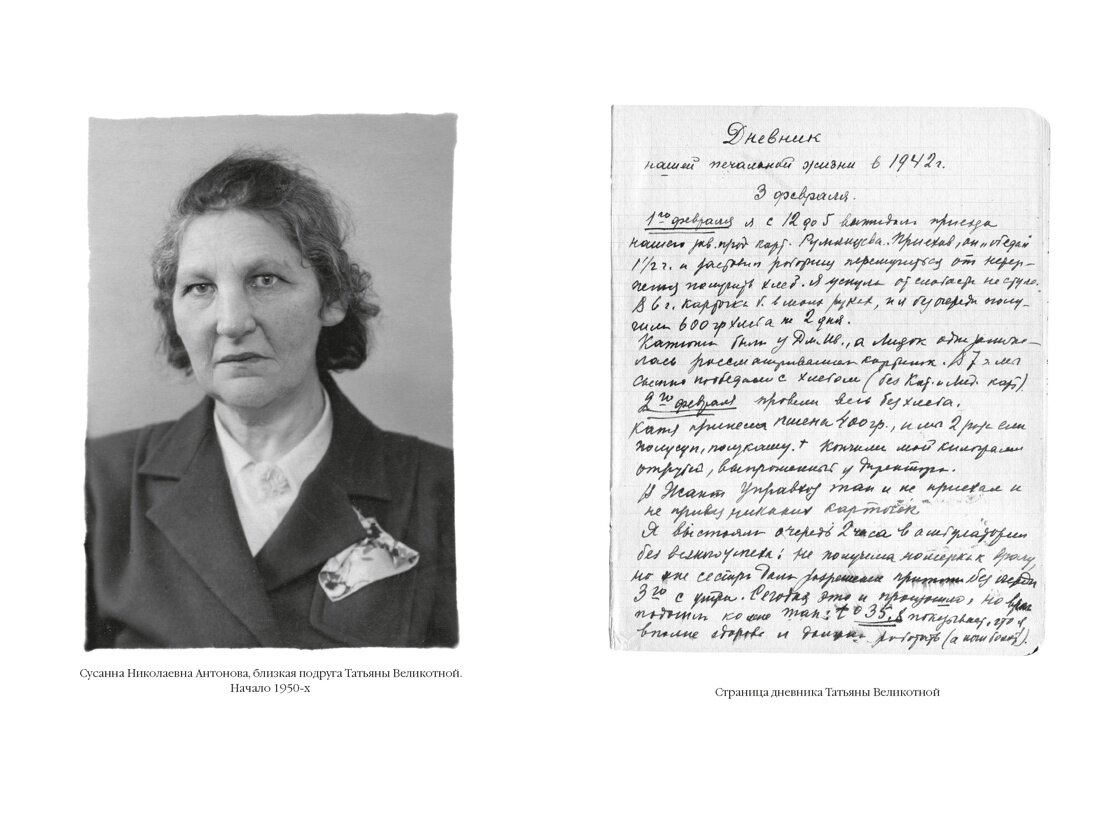 Сусанна Николаевна Антонова, близкая подруга Татьяны Великотной.
Начало 1950-х
Дневник
нашей печальной жизни в 1942 г.
3 февраля.
1го февраля я с 12 до 5 выжидала приезда
нашего зав. прод. карт. Румянцева. Приехав, он "обедал
1½ г. и заставил работниц перемучиться от нетер-
пения получить хлеб. Я уснула от слабости на стуле.
В 6 г. карточка б. в моих руках, и я без очереди полу-
чила 600 гр хлеба на 2 дня.
Катюша была у Дм. Ив., а Лидок одна занима-
лась рассматриванием картинок. В 7 ч мы
сытно пообедали с хлебом (без Кат. и Лид. карт)
2го февраля провели весь без хлеба.
Катя принесла пшена 400 гр., и мы 2 раза ели
полусуп, полукашу. + Кончили мой килограмм
отрубей, выпрошенный у директора.
В Жакт Управхоз так и не приехал и
не привез никаких карточек
Я выстояла очередь 2 часа в амбулатории
без всякого успеха: не получила номерка к врачу,
но мне сестра дала разрешение притти без очереди
3го с утра. Сегодня это и произошло, но врач
подошел ко мне так: t° 35,8 показывает, что я
вполне здорова и должна работать (а
Страница дневника Татьяны Великотной